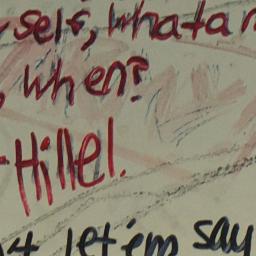 self, what a
, when?
-Hillel.
let'em say